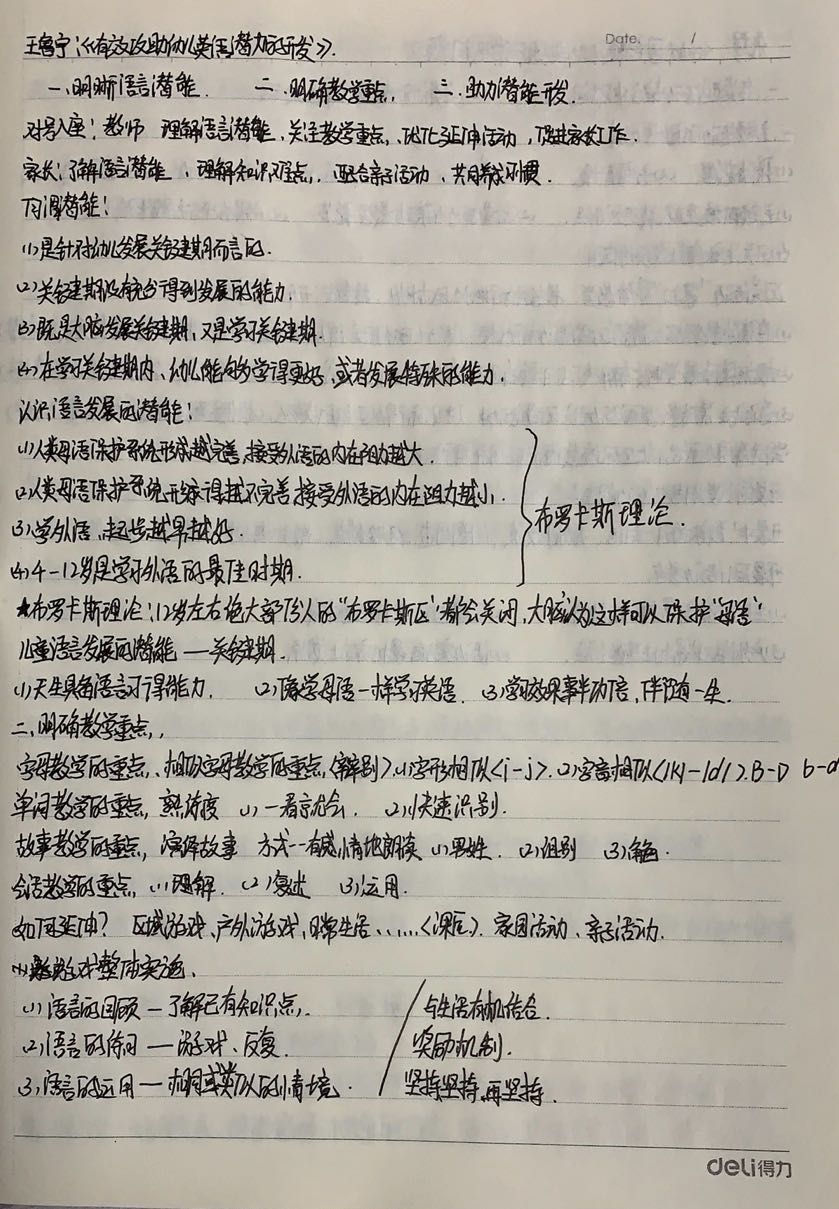 Date. /
王鲁宁:《有效改助幼儿英语潜力的开发》.
一、明晰语言潜能. 二、明确教学重点, 三、助力潜能开发.
对号入座:教师 理解语言潜能、关注教学重点、优化延伸活动、促进家长工作.
家长:了解语言潜能、理解知识难点、配合亲子活动、共同养成习惯.
何谓潜能!
(1)是针对幼儿发展关键期而言的.
(2)关键期没有充分得到发展的能力.
(3)既是大脑发展关键期,又是学习关键期.
(4)在学习关键期内、幼儿能够学得更好,或者发展特殊的能力.
认识语言发展的潜能!
(1)人类母语保护系统形成越完善,接受外语的内在阻力越大.
(2)人类母语保护系统形成得越不完善接受外语的内在阻力越小.
(3)学外语,起步越早越好.
(4)4-12岁是学习外语的最佳时期.
布罗卡斯理论.
★布罗卡斯理论:12岁左右绝大部份人的“布罗卡斯区”都会关闭,大脑认为这样可以保护“母语”
儿童语言发展的潜能 — 关键期.
(1)天生具备语言习得能力. (2)像学母语一样学习英语. (3)学习效果事半功倍,伴随一生.
二、明确教学重点,
字母教学的重点、相似字母教学的重点,(辨别).(1)字形相似<i-j>.(2)字音相似</k/-/d/>.B-D b-d
单词教学的重点,熟练度 (1)一看就会. (2)快速识别.
故事教学的重点,演绎故事 方式--有感情地朗读 (1)男姓. (2)组别 (3)角色.
会话教学的重点,(1)理解. (2)复述 (3)运用.
如何延伸? 区域游戏、户外游戏,日常生活、……〈课后〉.家园活动、亲子活动.
游戏整体实施、
(1)语言的回顾—了解已有知识点,.
(2)语言的练习—游戏、反复.
(3)语言的运用—相同或类似的情境.
与生活有机结合.
奖励机制.
坚持坚持,再坚持.
deli得力